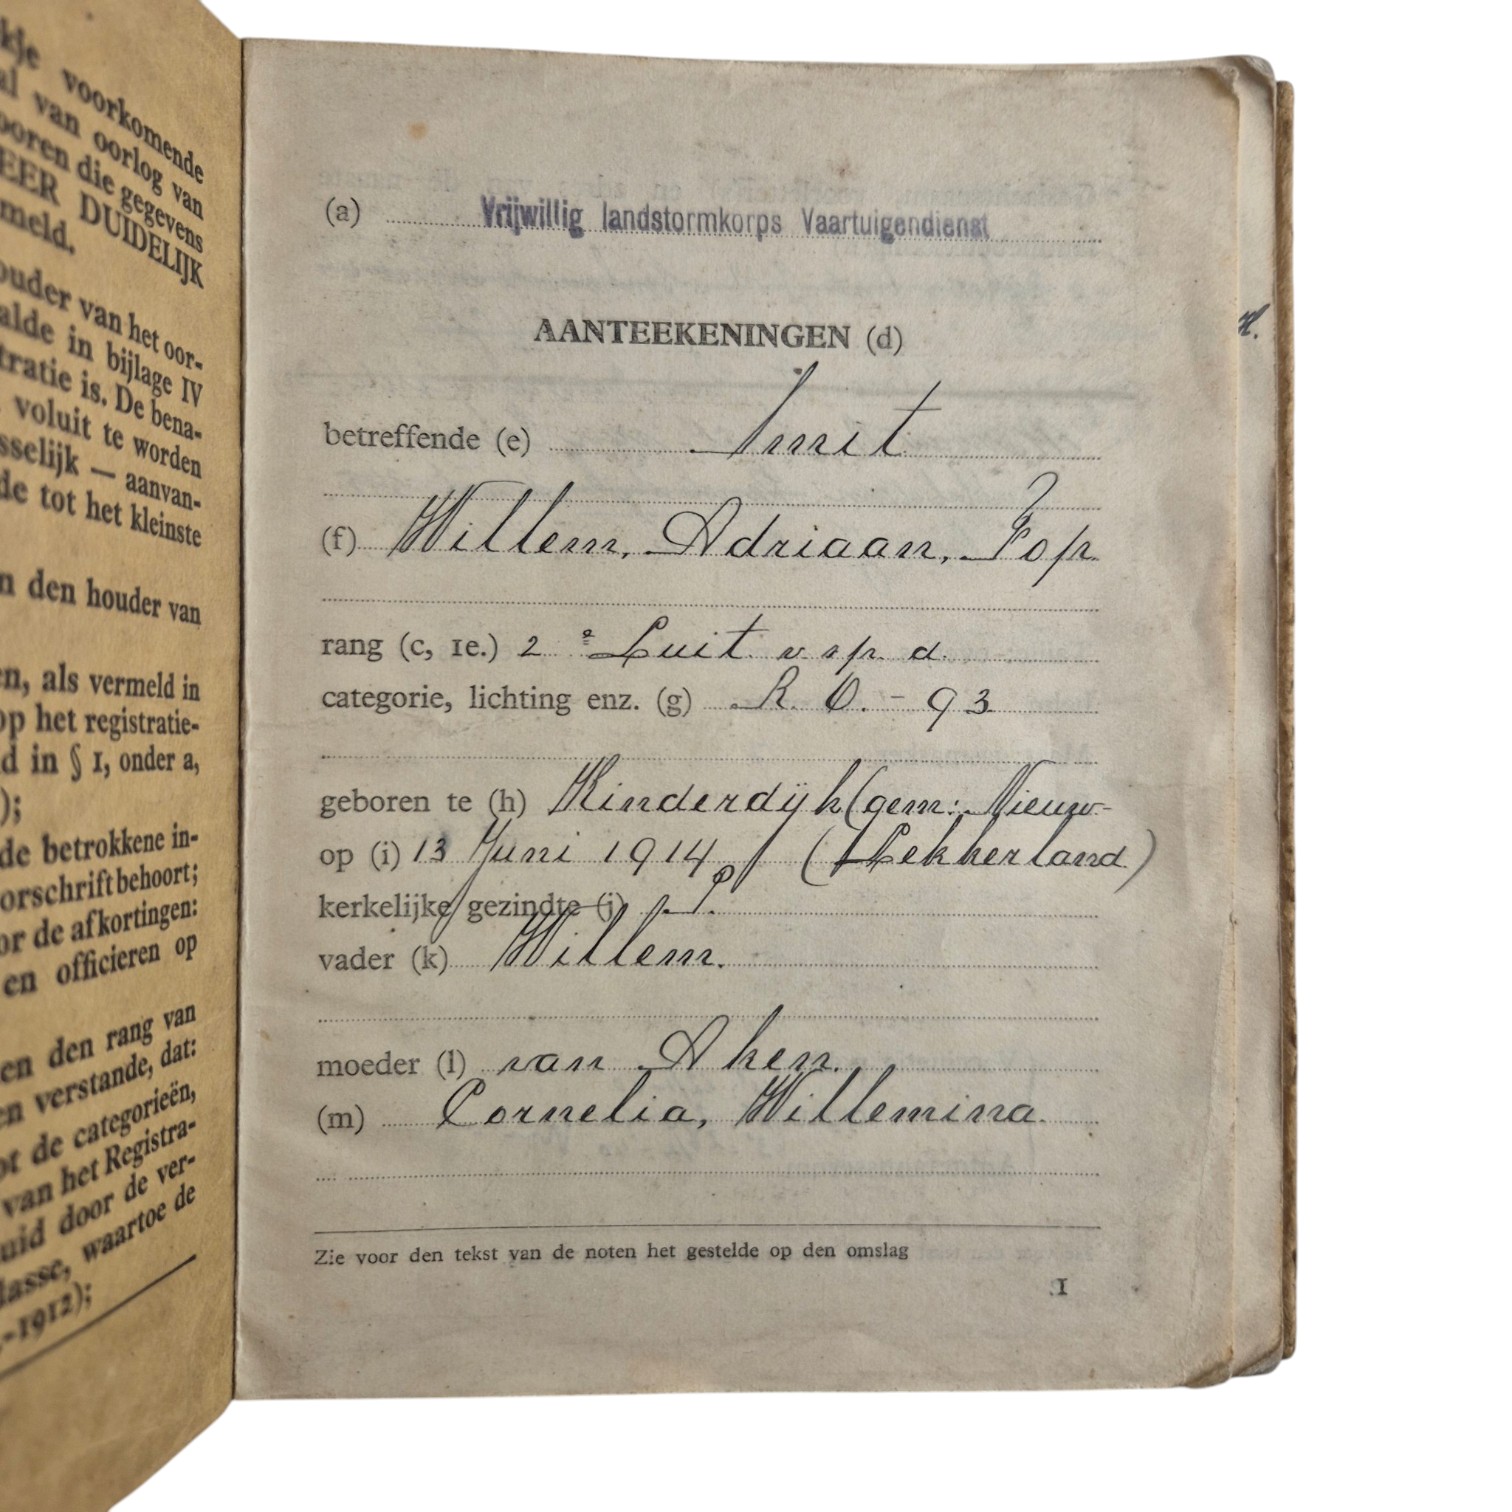 kje voorkomende
al van oorlog van
ooren die gegevens
EER DUIDELIJK
meld.
ouder van het oor-
alde in bijlage IV
tratie is. De bena-
voluit te worden
sselijk — aanvan-
de tot het kleinste
n den houder van
en, als vermeld in
op het registratie-
d in § 1, onder a,
);
de betrokkene in-
oorschrift behoort;
or de afkortingen:
en officieren op
en den rang van
en verstande, dat:
ot de categorieën,
van het Registra-
uid door de ver-
lasse, waartoe de
-1912);
(a) Vrijwillig landstormkorps Vaartuigendienst
AANTEEKENINGEN (d)
betreffende (e) Smit
(f) Willem, Adriaan, Fop
rang (c, 1e.) 2e Luit v sp. d.
categorie, lichting enz. (g) R. O. - 93
geboren te (h) Kinderdijk (gem: Nieuw-
op (i) 13 Juni 1914 (Lekkerland)
kerkelijke gezindte (j) P.
vader (k) Willem.
moeder (l) van Aken.
(m) Cornelia, Willemina.
Zie voor den tekst van de noten het gestelde op den omslag
1